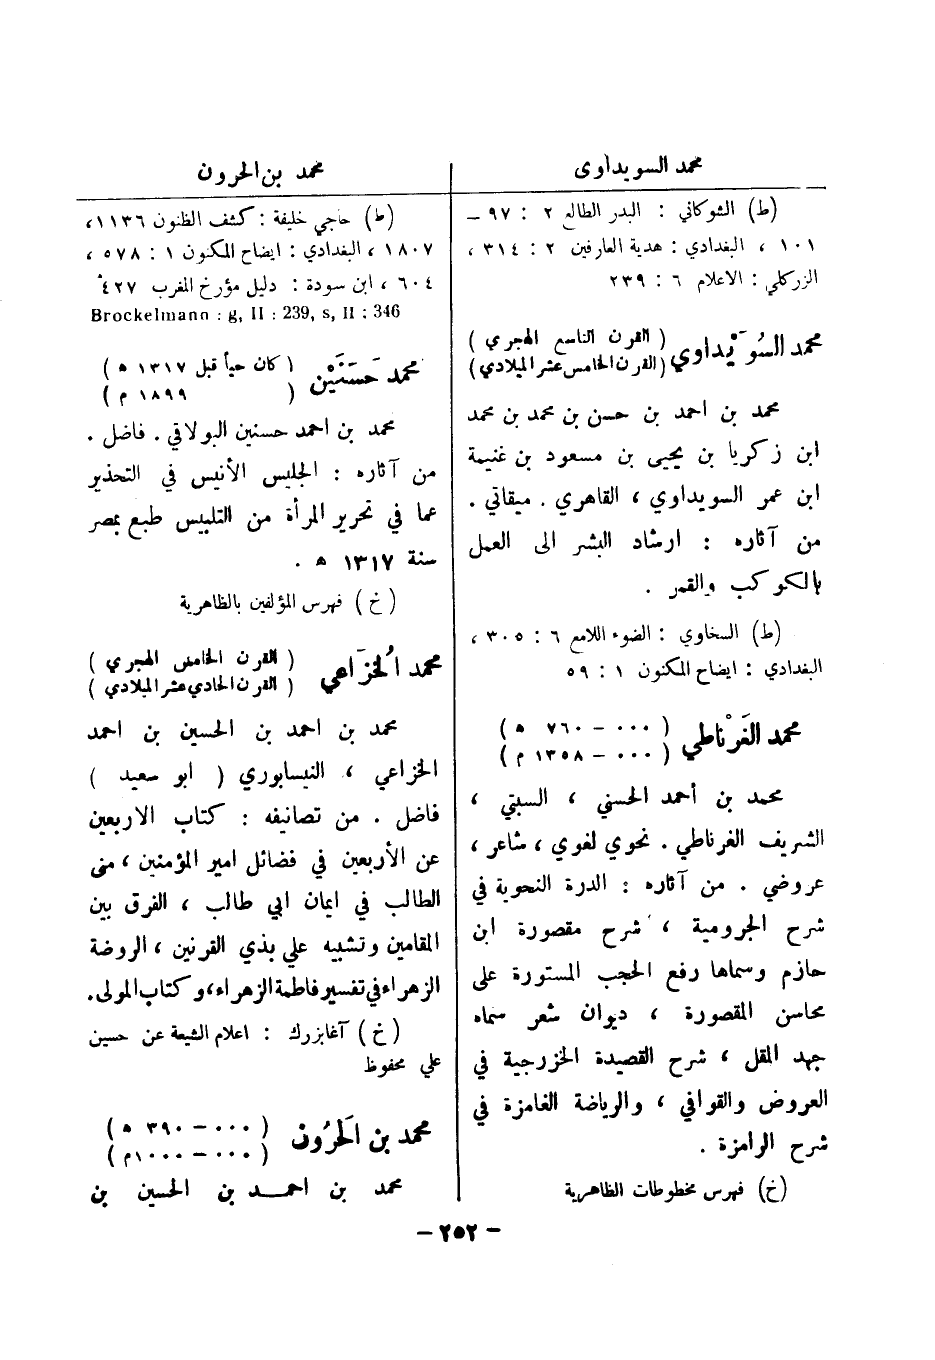 محمد السويداوى
(ط) الشوكاني : البدر الطالع ٢ : ٩٧ –
١٠١ ، البغدادي : هدية العارفين ٢ : ٣١٤ ،
الزركلي : الاعلام ٦ : ٢٣٩
محمد السُوَيْداوي ( القرن التاسع الهجري )
(القرن الخامس عشر الميلادي)
محمد بن احمد بن حسن بن محمد بن محمد
ابن زكريا بن يحيى بن مسعود بن غنيمة
ابن عمر السويداوي ، القاهري . ميقاتي .
من آثاره : ارشاد البشر الى العمل
بالكوكب والقمر .
(ط) السخاوي : الضوء اللامع ٦ : ٣٠٥ ،
البغدادي : ايضاح المكنون ١ : ٥٩
محمد الغَرْناطي ( ٠٠٠ – ٧٦٠ ه )
( ٠٠٠ – ١٣٥٨ م )
محمد بن أحمد الحسني ، السبتي ،
الشريف الغرناطي . نحوي لغوي ، شاعر ،
عروضي . من آثاره : الدرة النحوية في
شرح الجرومية ، شرح مقصورة ابن
حازم وسماها رفع الحجب المستورة على
محاسن المقصورة ، ديوان شعر سماه
جهد المقل ، شرح القصيدة الخزرجية في
العروض والقوافي ، والرياضة الغامزة في
شرح الرامزة .
(خ) فهرس مخطوطات الظاهرية
محمد بن الحرون
(ط) حاجي خليفة : كشف الظنون ١١٣٦،
١٨٠٧ ، البغدادي : ايضاح المكنون ١ : ٥٧٨ ،
٦٠٤ ، ابن سودة : دليل مؤرخ المغرب ٤٢٧
Brockelmann : g, II : 239, s, II : 346
محمد حَسَنَيْن ( كان حياً قبل ١٣١٧ ه )
( ١٨٩٩ م )
محمد بن احمد حسنين البولاقي . فاضل .
من آثاره : الجليس الأنيس في التحذير
عما في تحرير المرأة من التلبيس طبع بمصر
سنة ١٣١٧ ه .
(خ) فهرس المؤلفين بالظاهرية
محمد الخُزَاعي ( القرن الخامس الهجري )
( القرن الحادي عشر الميلادي )
محمد بن احمد بن الحسين بن احمد
الخزاعي ، النيسابوري ( ابو سعيد )
فاضل . من تصانيفه : كتاب الاربعين
عن الأربعين في فضائل امير المؤمنين ، منى
الطالب في ايمان ابي طالب ، الفرق بين
المقامين وتشبيه علي بذي القرنين ، الروضة
الزهراء في تفسير فاطمة الزهراء، وكتاب المولى.
(خ) آغابزرك : اعلام الشيعة عن حسين
علي محفوظ
محمد بن الحَرُون ( ٠٠٠ – ٣٩٠ ه )
( ٠٠٠ – ١٠٠٠ م )
محمد بن احمد بن الحسين بن
– ٢٥٢ –